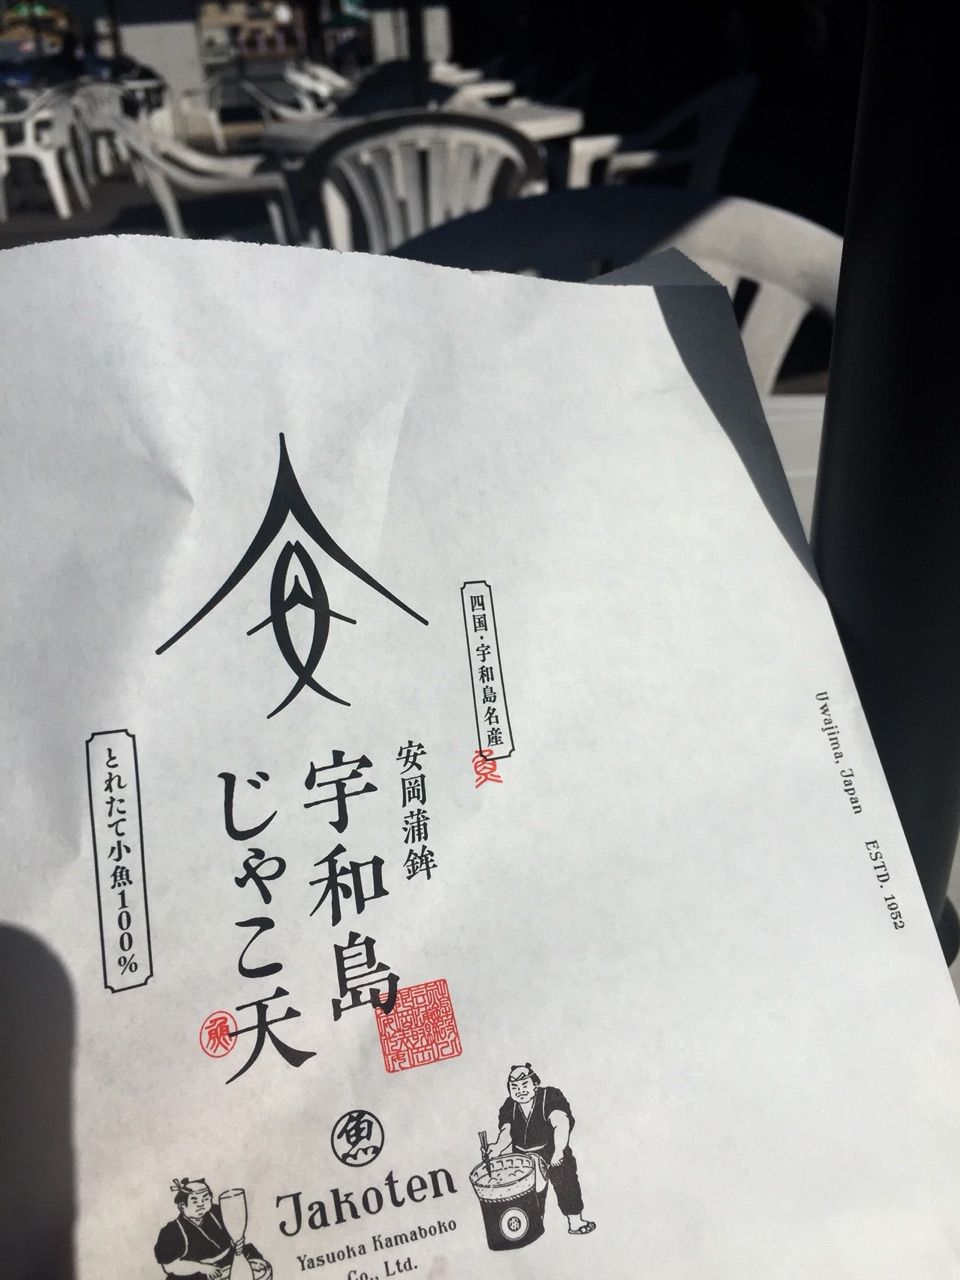 四国・宇和島名産
魚
安岡蒲鉾
宇和島
じゃこ天
魚
とれたて小魚100%
魚
Jakoten
Yasuoka Kamaboko
Co., Ltd.
Uwajima, Japan ESTD. 1952